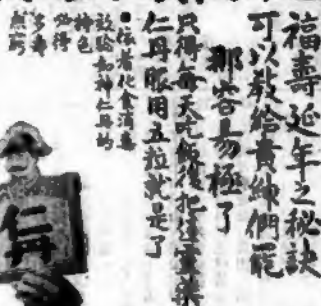 福壽延年之秘訣
可以敎給貴緯們罷
那容易極了
只得每天吃飯後把這靈藥
仁丹服用五粒就是了
■保者化食消毒
效驗如神仁丹的
特色
必得
多壽
無窮
仁丹